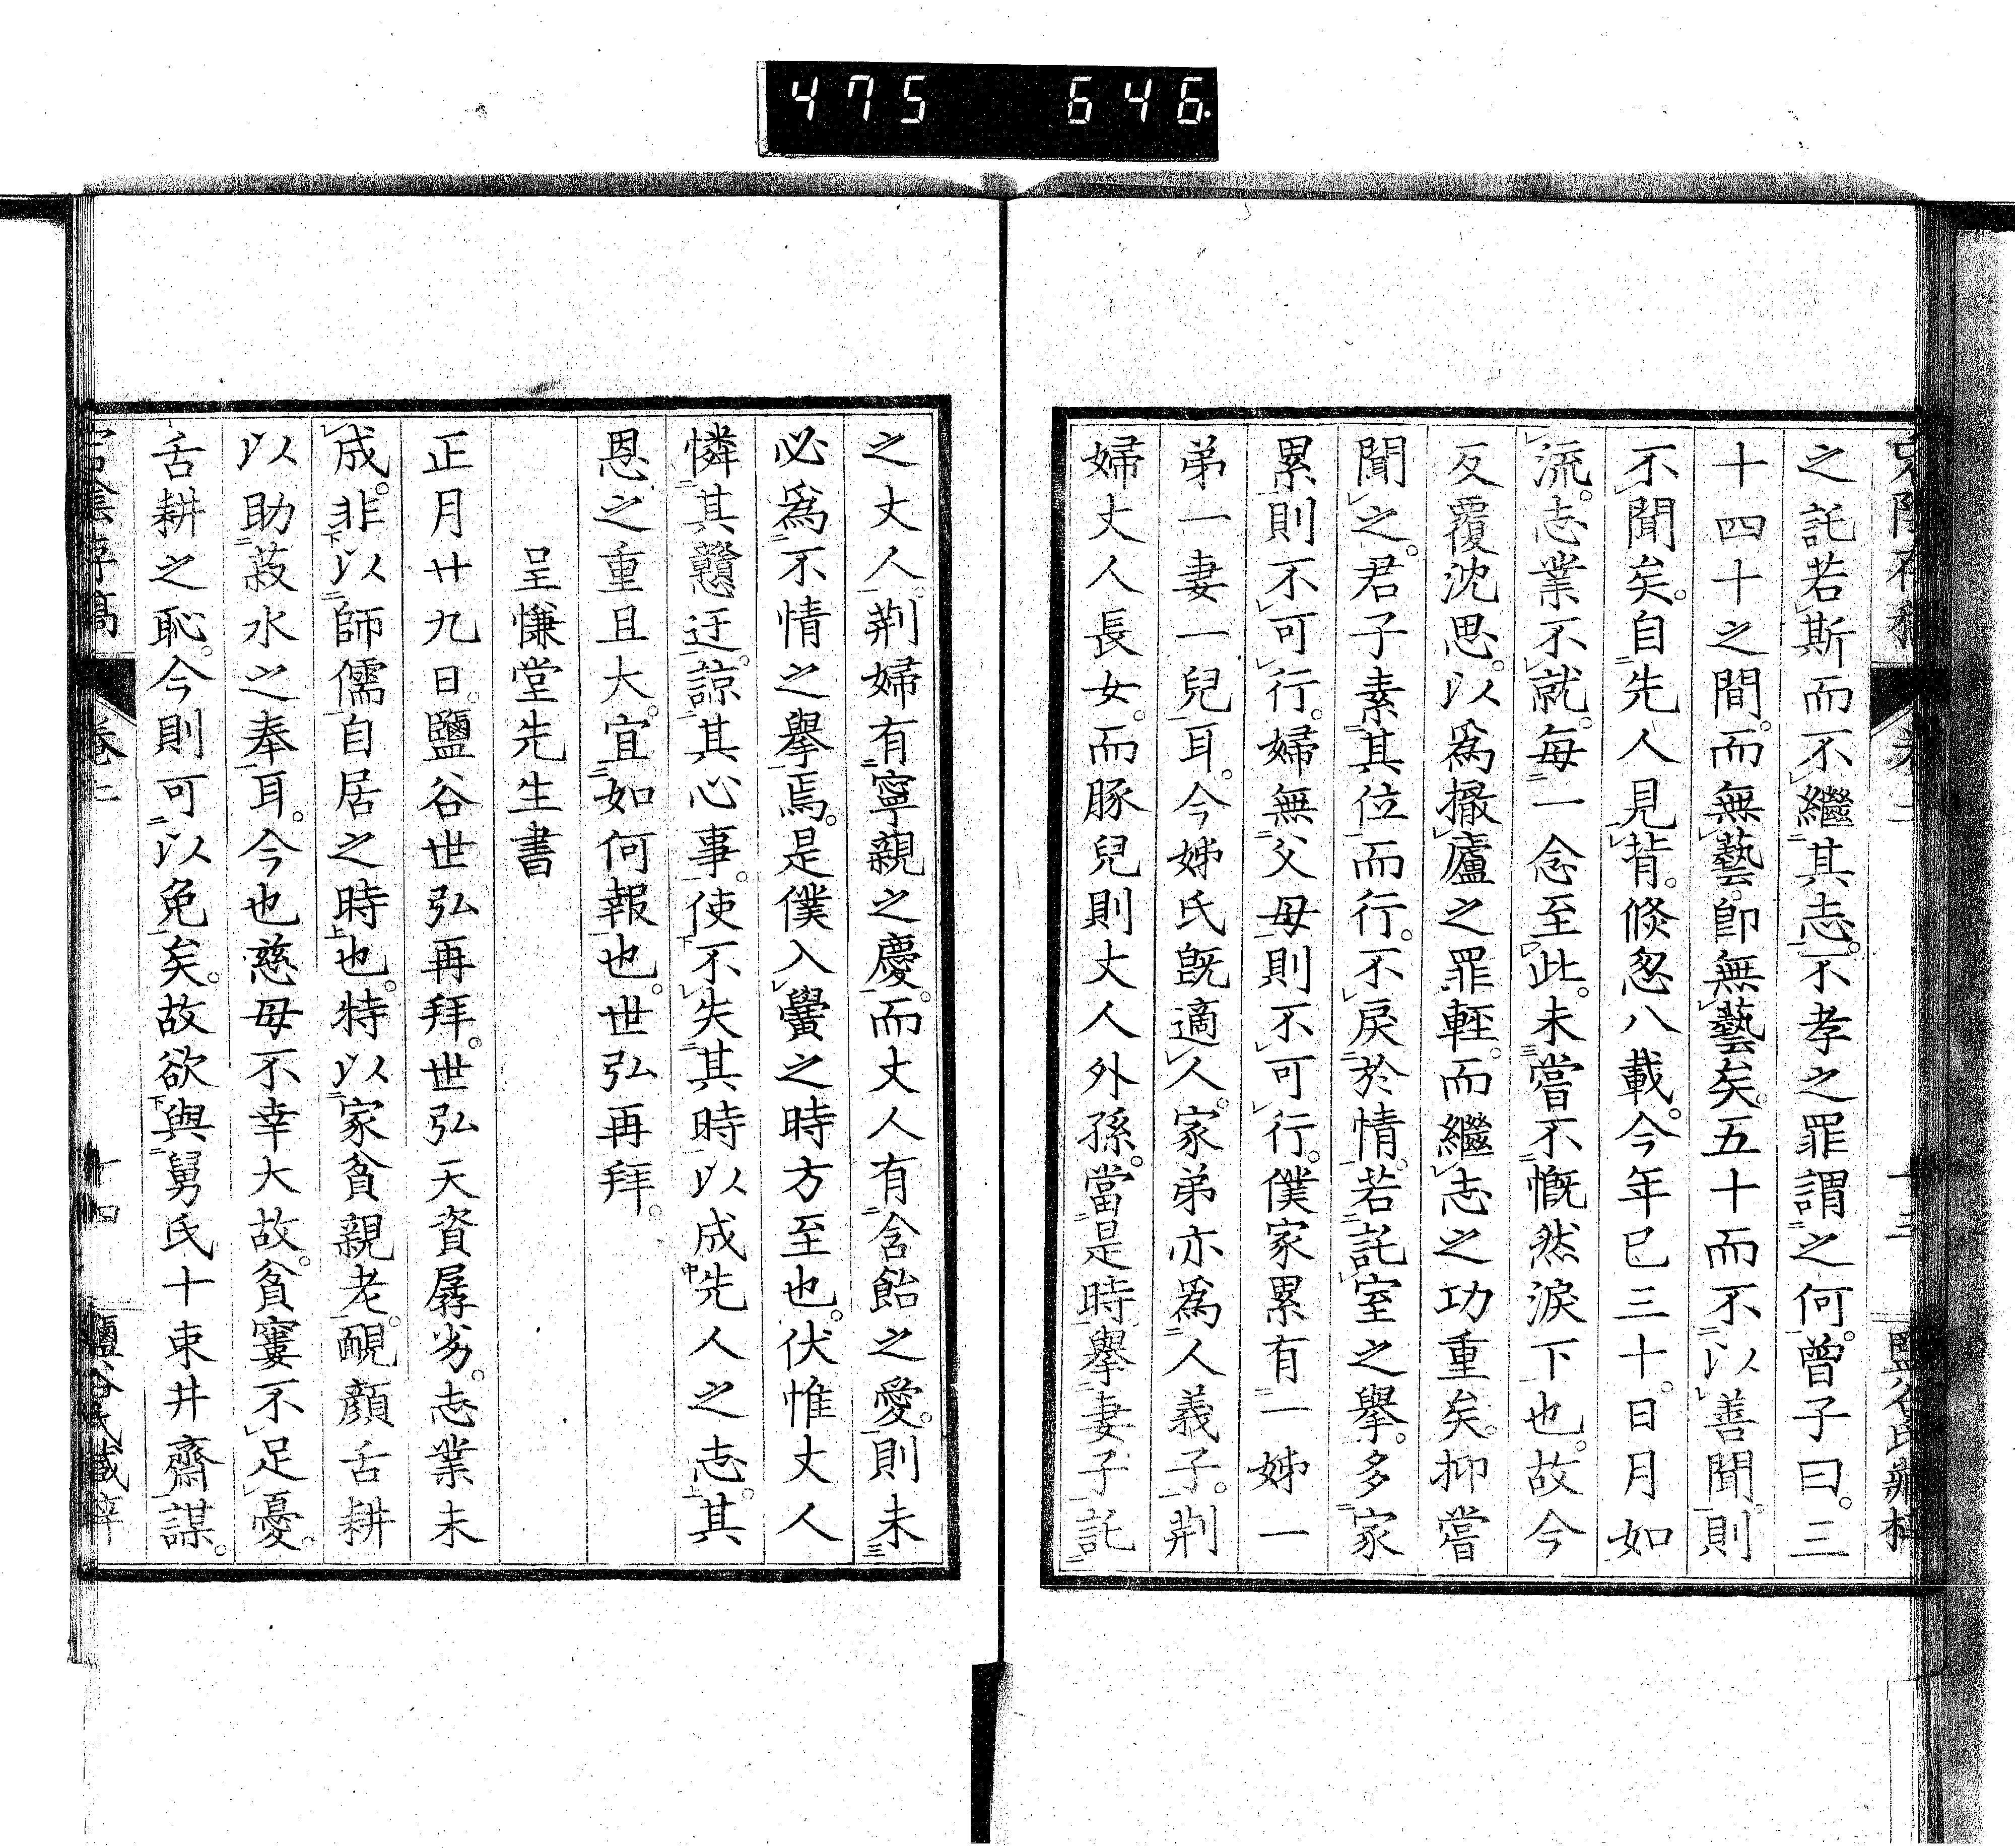 475 646
之託若斯而不繼其志。不孝之罪謂之何。曾子曰。三
十四十之間。而無藝。即無藝矣。五十而不以善聞。則
不聞矣。自先人見背。倏忽八載。今年已三十。日月如
流。志業不就。每一念至此。未嘗不慨然淚下也。故今
反覆沈思。以爲撤廬之罪輕。而繼志之功重矣。抑嘗
聞之。君子素其位而行。不戾於情。若託室之擧。多家
累則不可行。婦無父母則不可行。僕家累有一姊一
弟一妻一兒耳。今姊氏既適人。家弟亦爲人義子。荆
婦丈人長女。而豚兒則丈人外孫。當是時擧妻子託
之丈人。荆婦有寧親之慶。而丈人有含飴之愛。則未
必爲不情之擧焉。是僕入黌之時方至也。伏惟丈人
憐其戇迂。諒其心事。使不失其時以成先人之志。其
恩之重且大。宜如何報也。世弘再拜。
呈慊堂先生書
正月廿九日。鹽谷世弘再拜。世弘天資孱劣。志業未
成。非以師儒自居之時也。特以家貧親老。靦顔舌耕
以助菽水之奉耳。今也慈母不幸大故。貧窶不足憂。
舌耕之恥。今則可以免矣。故欲與舅氏十束井齋謀。
宕陰存稿 卷二 十四 鹽谷氏藏梓